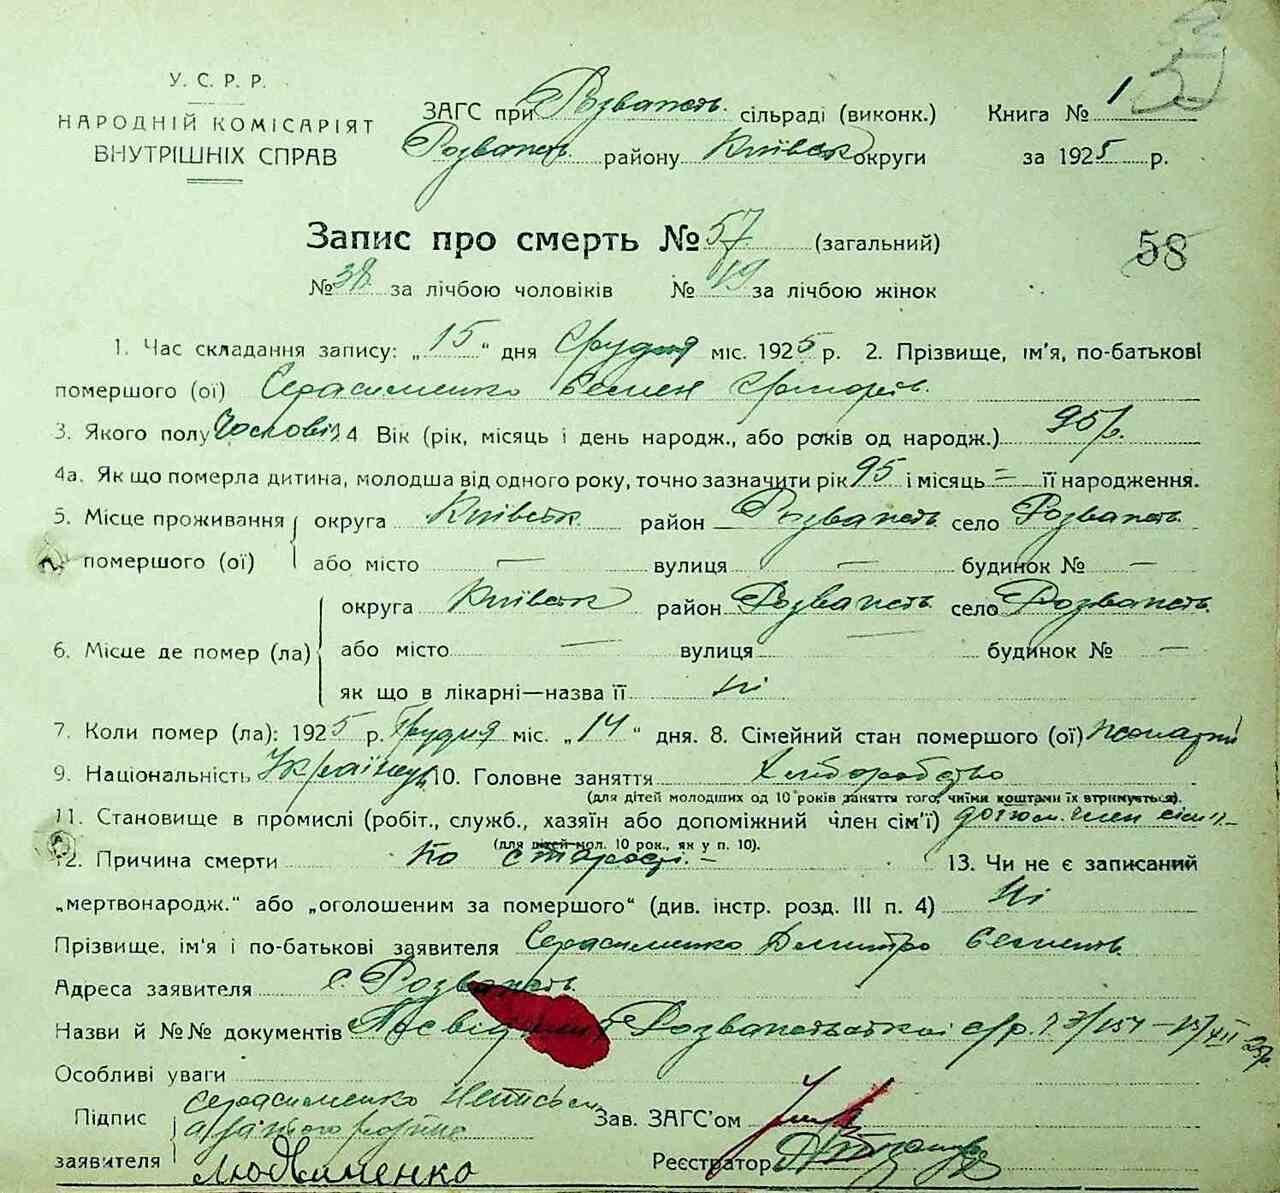 У. С. Р. Р.
НАРОДНІЙ КОМІСАРІЯТ
ВНУТРІШНІХ СПРАВ
ЗАГС при Розважів. сільраді (виконк.)
Розважів. району Київськ округи
Книга № 1
за 1925 р.
Запис про смерть № 57 (загальний)
58
№ 38 за лічбою чоловіків № 19 за лічбою жінок
1. Час складання запису: „15“ дня Грудня міс. 1925 р. 2. Прізвище, ім'я, по-батькові
помершого (ої) Герасименко Семен Григорів.
3. Якого полу Чоловіч. 4. Вік (рік, місяць і день народж., або років од народж.) 95 р.
4а. Як що померла дитина, молодша від одного року, точно зазначити рік 95 і місяць = її народження.
5. Місце проживання округа Київськ район Розважів село Розважів.
помершого (ої) або місто — вулиця — будинок № —
округа Київськ район Розважів село Розважів.
6. Місце де помер (ла) або місто — вулиця — будинок № —
як що в лікарні—назва її ні
7. Коли помер (ла): 1925 р. Грудня міс. „14“ дня. 8. Сімейний стан помершого (ої) жонатий
9. Національність Українець 10. Головне заняття Хліборобство
(для дітей молодших од 10 років заняття того, чиїми коштами їх втримується).
11. Становище в промислі (робіт., служб., хазяїн або допоміжний член сім'ї) допом. член сім'ї
(для дітей мол. 10 рок., як у п. 10).
12. Причина смерти по старості. — 13. Чи не є записаний
„мертвонародж.“ або „оголошеним за помершого“ (див. інстр. розд. III п. 4) ні
Прізвище, ім'я і по-батькові заявителя Герасименко Дмитро Семенів.
Адреса заявителя с. Розважів.
Назви й №№ документів Розважівської с/р. 3/154 – 15/XII 25р.
Особливі уваги
Підпис Герасименко Неписьм
заявителя
Зав. ЗАГС'ом
Реєстратор